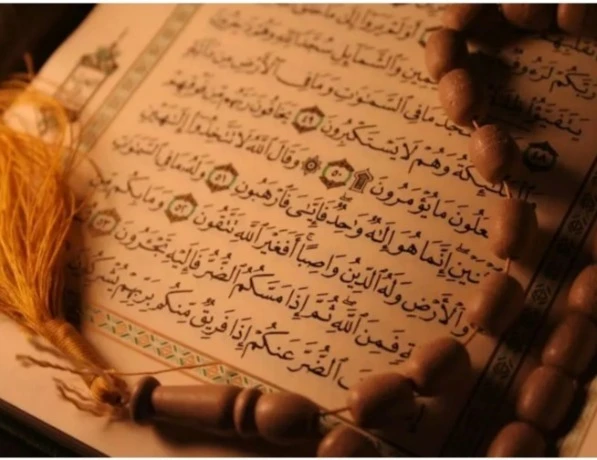 رَبَّكُمْ لَرَءُوفٌ أَوَلَمْ يَرَوْا۟ إِلَىٰ مَا خَلَقَ
يَتَفَيَّؤُا۟ وَٱلشَّمَآئِلِ سُجَّدًا لِّلَّهِ وَهُمْ دَٰخِرُونَ
٤٨ يَسْجُدُ مَا فِى ٱلسَّمَٰوَٰتِ وَمَا فِى ٱلْأَرْضِ مِن دَآبَّةٍ
وَٱلْمَلَٰٓئِكَةُ وَهُمْ لَا يَسْتَكْبِرُونَ ٤٩ يَخَافُونَ رَبَّهُم مِّن فَوْقِهِمْ
وَيَفْعَلُونَ مَا يُؤْمَرُونَ ۩ ٥٠ ۞ وَقَالَ ٱللَّهُ لَا تَتَّخِذُوٓا۟ إِلَٰهَيْنِ
ٱثْنَيْنِ إِنَّمَا هُوَ إِلَٰهٌ وَٰحِدٌ فَإِيَّٰىَ فَٱرْهَبُونِ ٥١ وَلَهُۥ مَا فِى ٱلسَّمَٰوَٰتِ
وَٱلْأَرْضِ وَلَهُ ٱلدِّينُ وَاصِبًا أَفَغَيْرَ ٱللَّهِ تَتَّقُونَ ٥٢ وَمَا بِكُم مِّن
فَمِنَ ٱللَّهِ ثُمَّ إِذَا مَسَّكُمُ ٱلضُّرُّ فَإِلَيْهِ تَجْـَٔرُونَ ٥٣
ٱلضُّرَّ عَنكُمْ إِذَا فَرِيقٌ مِّنكُم بِرَبِّهِمْ يُشْرِكُونَ